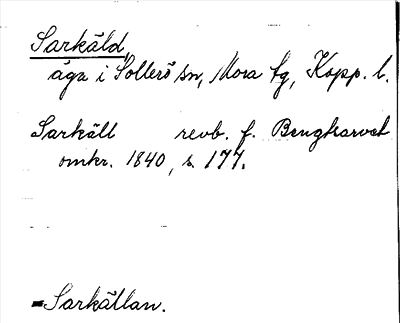 Sarkäld,
äga i Sollerö sn, Mora tg, Kopp. l.
Sarkäll revb. f. Bengtsarvet
omkr. 1840, s. 177.
= Sarkällan.